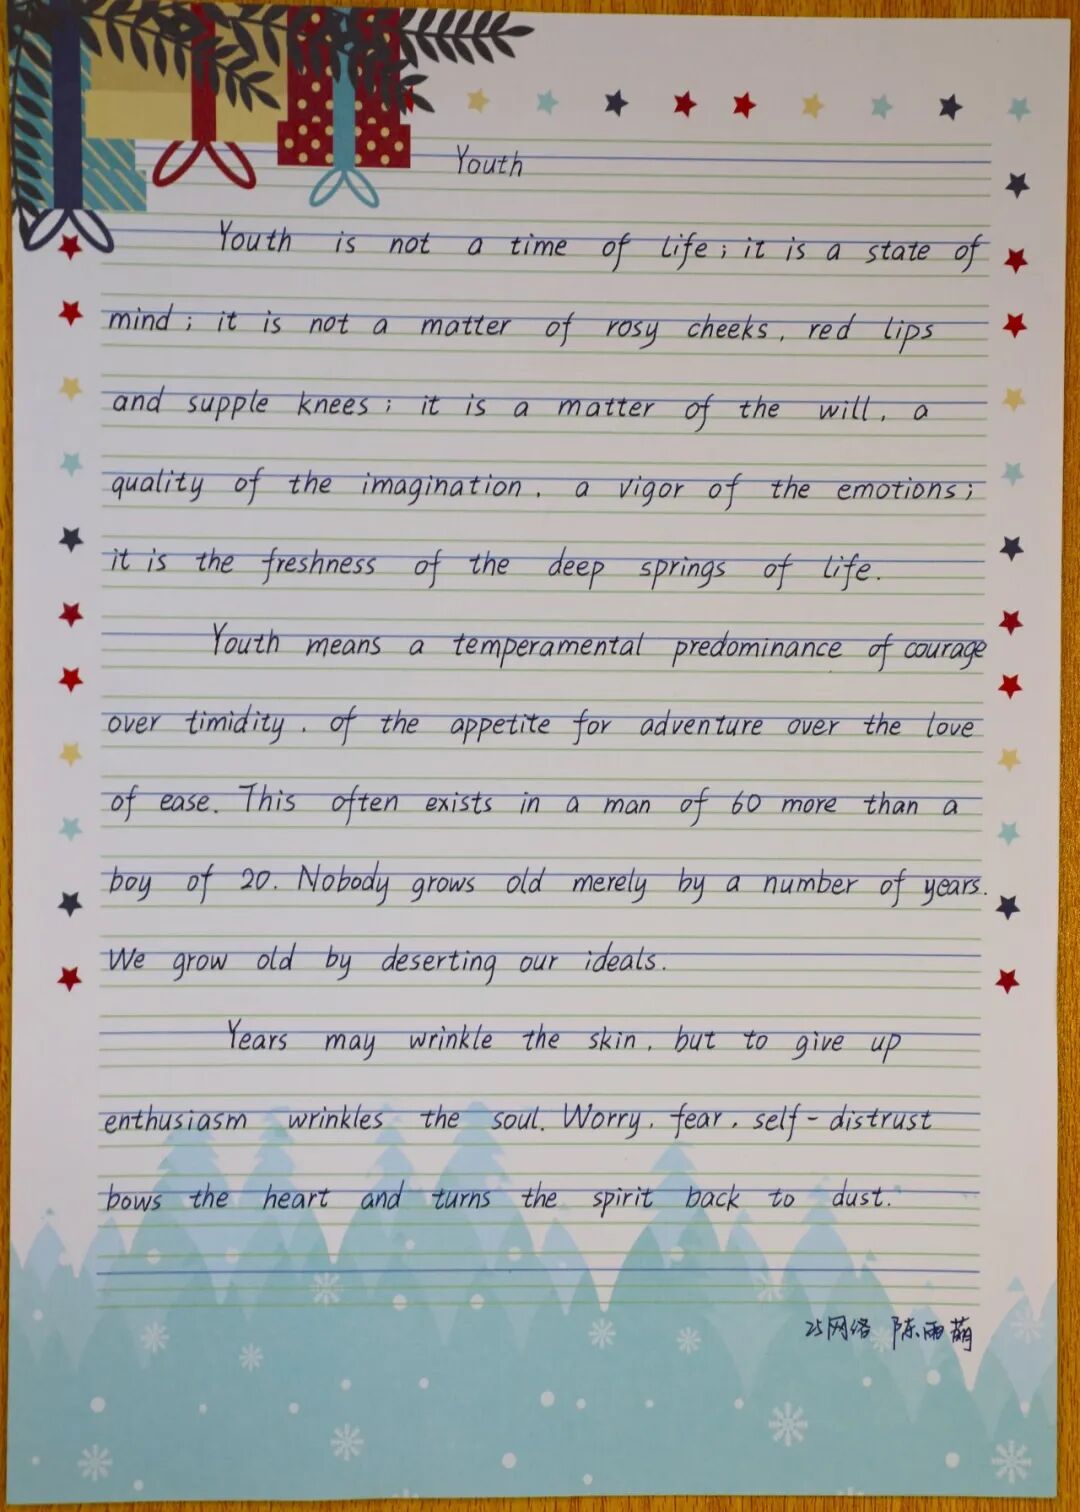 Youth
Youth is not a time of life; it is a state of
mind; it is not a matter of rosy cheeks, red lips
and supple knees; it is a matter of the will, a
quality of the imagination, a vigor of the emotions;
it is the freshness of the deep springs of life.
Youth means a temperamental predominance of courage
over timidity, of the appetite for adventure over the love
of ease. This often exists in a man of 60 more than a
boy of 20. Nobody grows old merely by a number of years.
We grow old by deserting our ideals.
Years may wrinkle the skin, but to give up
enthusiasm wrinkles the soul. Worry, fear, self-distrust
bows the heart and turns the spirit back to dust.
25网络 陈雨萌